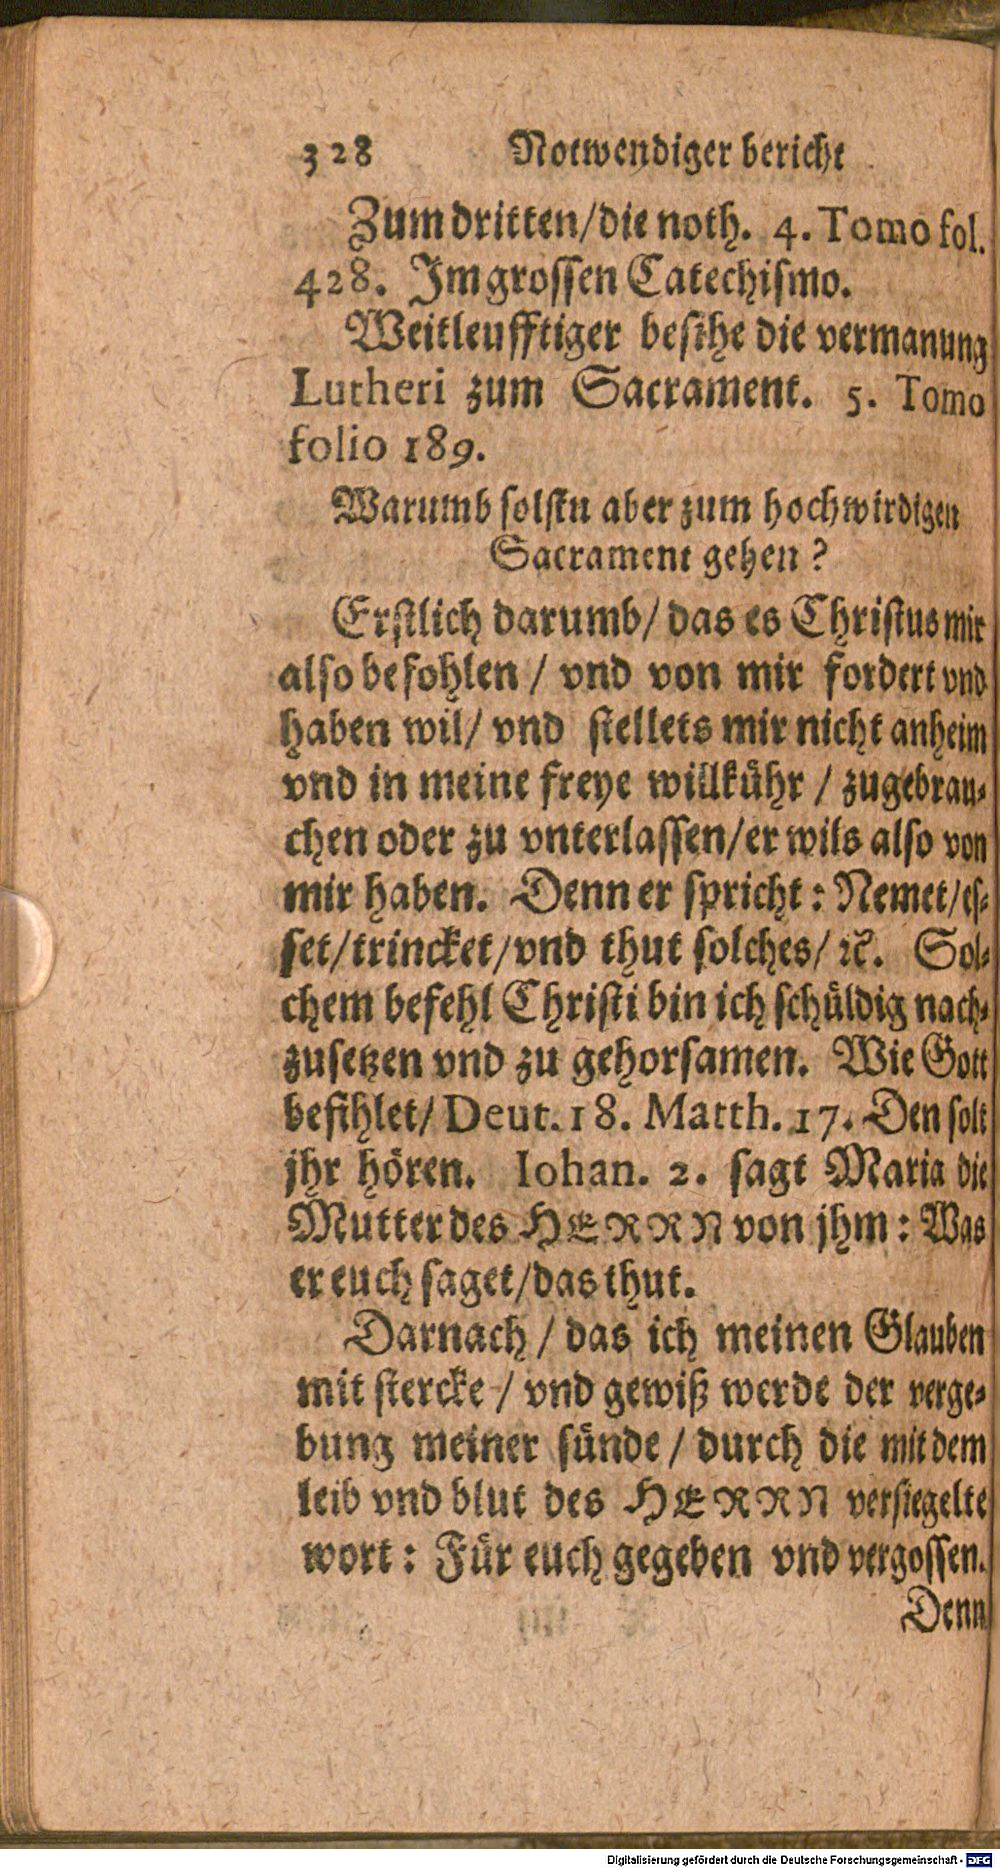 328 Notwendiger bericht
Zum dritten/die noth. 4. Tomo fol.
428. Im grossen Catechismo.
Weitleufftiger besihe die vermanung
Lutheri zum Sacrament. 5. Tomo
folio 189.
Warumb solstu aber zum hochwirdigen
Sacrament gehen?
Erstlich darumb/ das es Christus mir
also befohlen / vnd von mir fordert vnd
haben wil/ vnd stellets mir nicht anheim
vnd in meine freye willkühr / zugebrau-
chen oder zu vnterlassen/er wils also von
mir haben. Denn er spricht: Nemet/es-
set/trincket/vnd thut solches/ ꝛc. Sol-
chem befehl Christi bin ich schüldig nach-
zusetzen vnd zu gehorsamen. Wie Gott
befihlet/ Deut. 18. Matth. 17. Den solt
jhr hören. Iohan. 2. sagt Maria die
Mutter des HERRN von jhm: Was
er euch saget/das thut.
Darnach / das ich meinen Glauben
mit stercke / vnd gewiß werde der verge-
bung meiner sünde / durch die mit dem
leib vnd blut des HERRN versiegelte
wort: Für euch gegeben vnd vergossen.
Denn
Digitalisierung gefördert durch die Deutsche Forschungsgemeinschaft - DFG